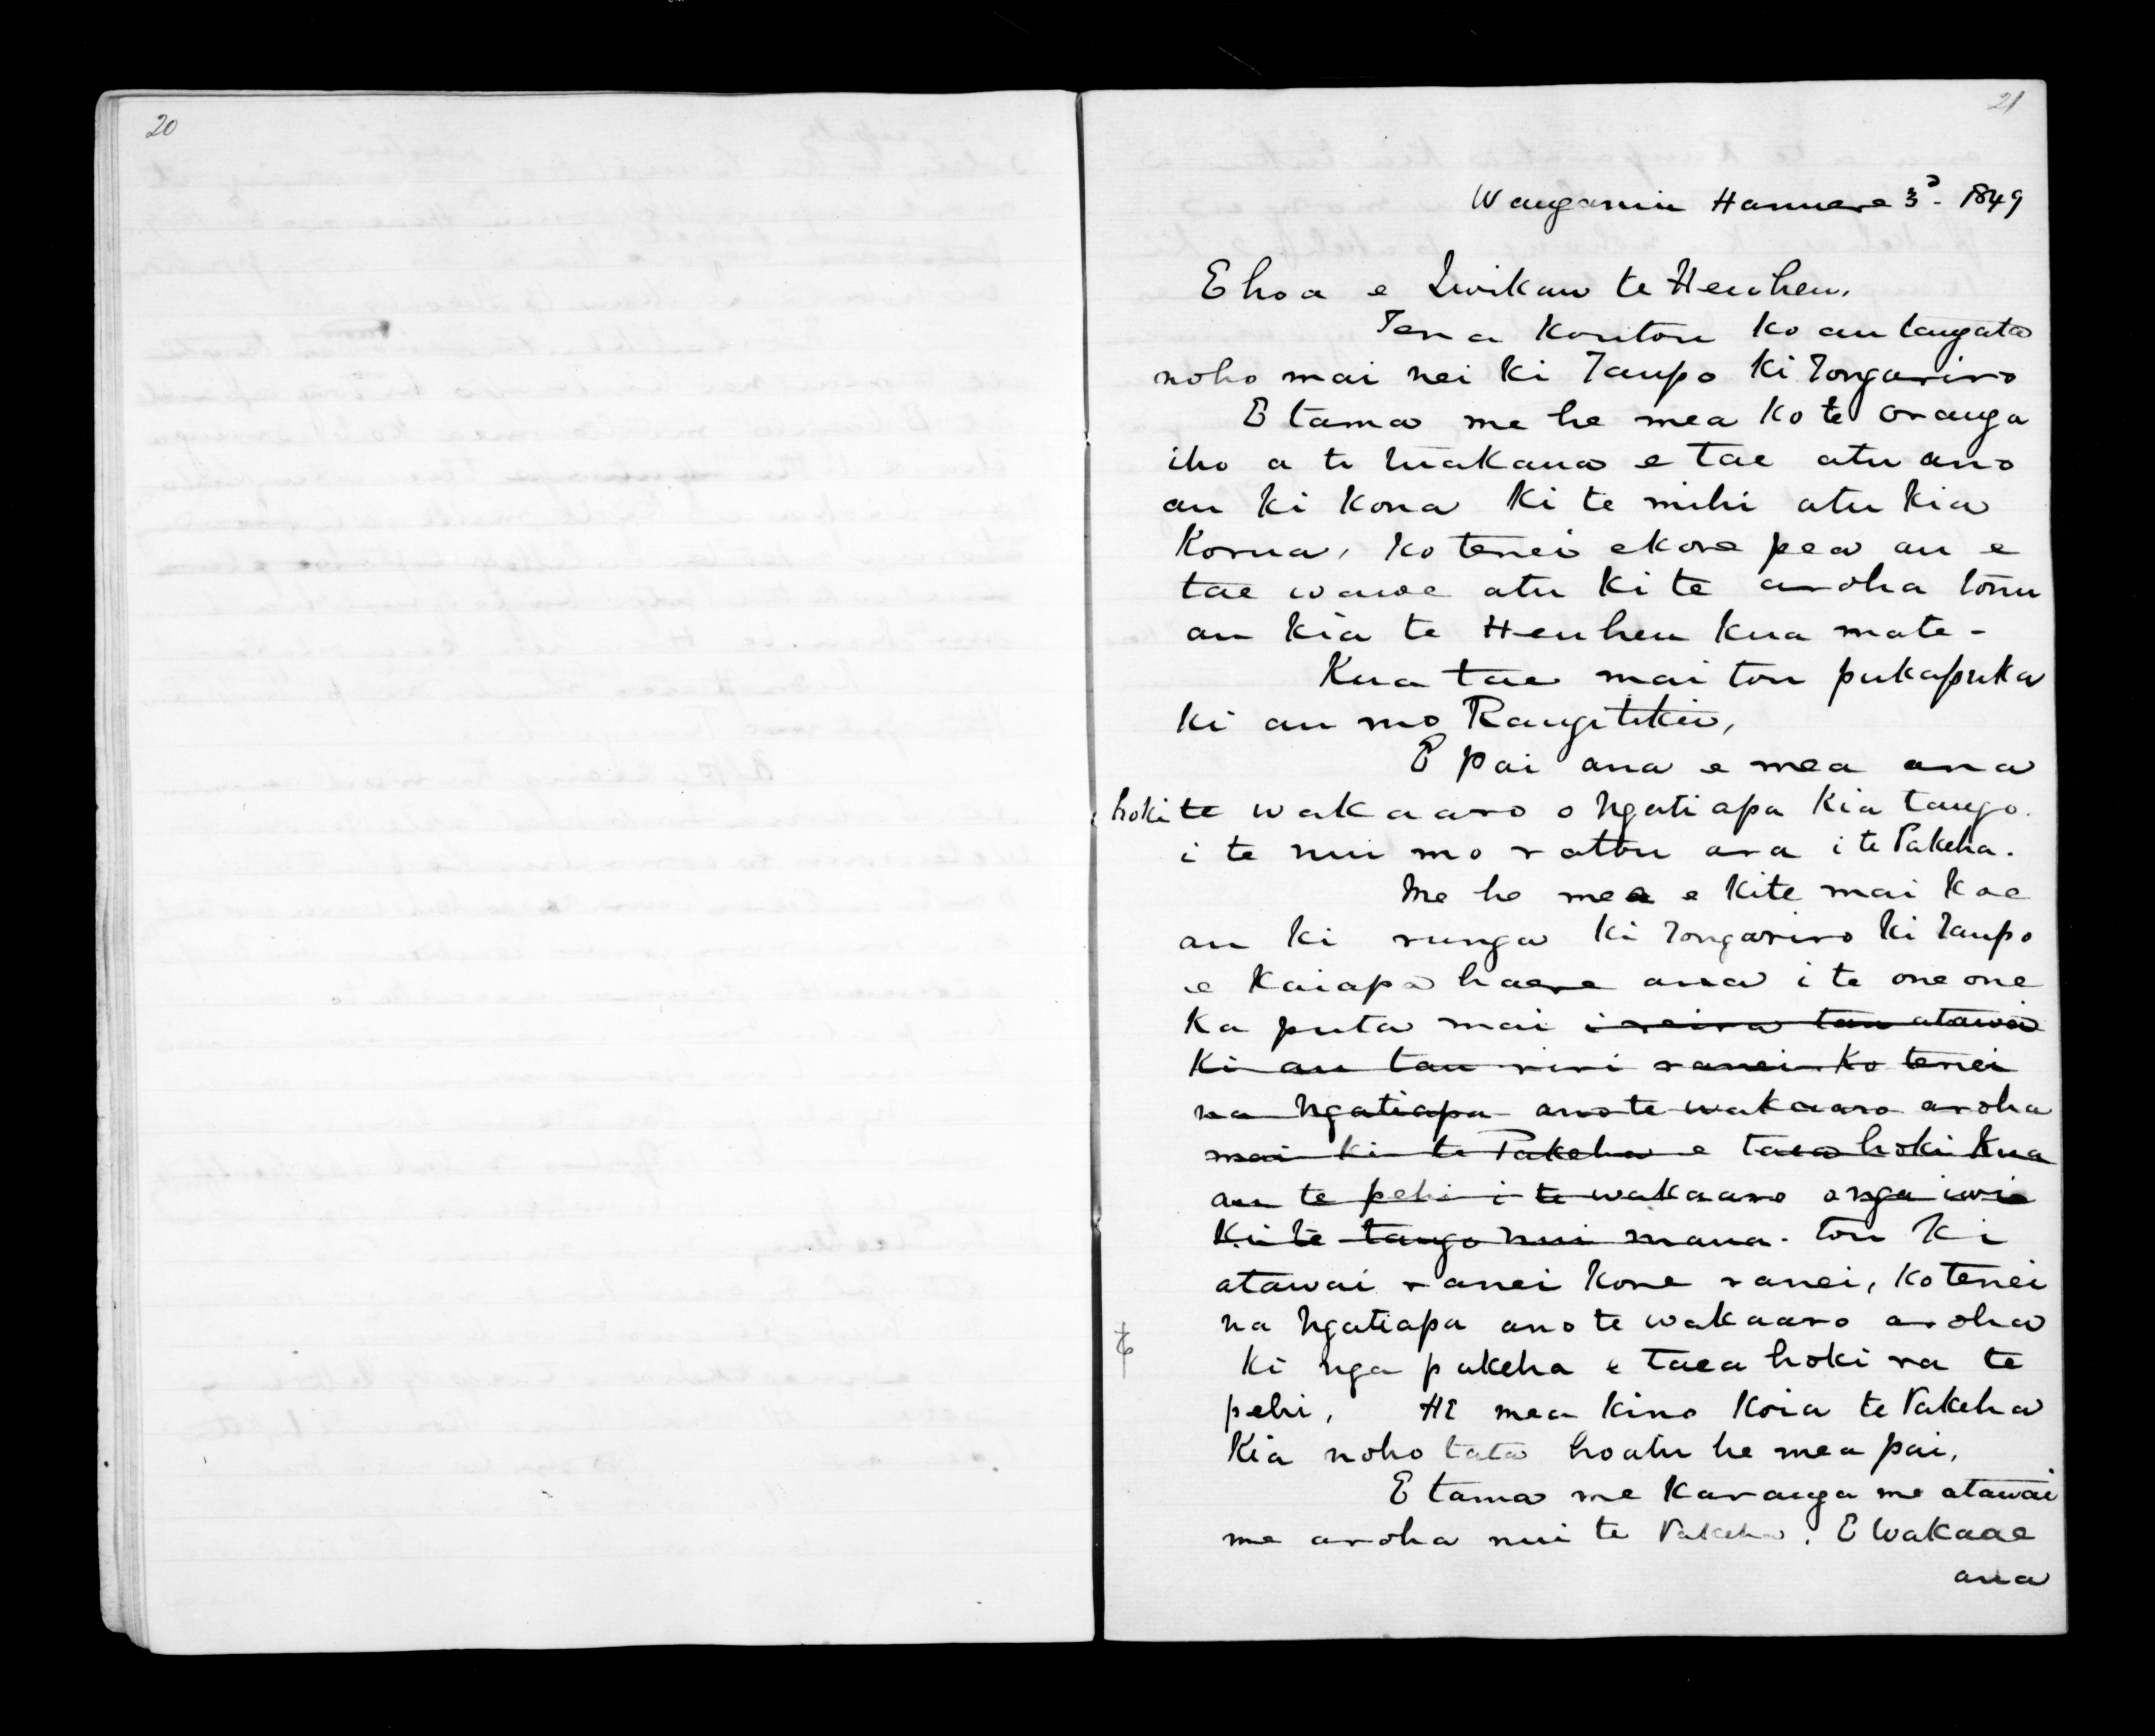 20
21
Wanganui Hanuere 3d. 1849
E hoa e Iwikau te Heuheu,
Tena Koutou ko au tangata
noho mai nei ki Taupo ki Tongariro
E tama me he mea ko te oranga
iho a te Makana e tae atu ano
au ki kona ki te mihi atu kia
Korua, ko tenei ekore pea au e
tae wawe atu ki te aroha tonu
au kia te Heuheu kua mate -
Kua tae mai tou pukapuka
ki au mo Rangitikei,
E pai ana e mea ana
hoki te wakaaro o Ngatiapa kia tango
i te nui mo ratou ara i te Pakeha.
Me he mea e kite mai koe
au ki runga ki Tongariro ki Taupo
e kaiapo haere ana i te oneone
ka puta mai i reira tau atawai
ki au tau riri ranei ko tenei
na Ngatiapa ano te wakaaro aroha
mai ki te Pakeha e taea hoki kua
au te pehi i te wakaaro o nga iwi
ki te tango nui mana. tou ki
atawai ranei kore ranei, ko tenei
na Ngatiapa ano te wakaaro aroha
ki nga pakeha e taea hoki ra te
pehi, HE mea kino koia te Pakeha
kia noho tata hoatu he mea pai,
E tama me karanga me atawai
me aroha nui te Pakeha. E wakaae
ana